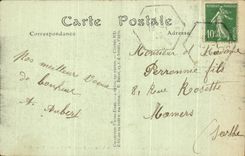 Carte Postale
Correspondance
Adresse
Nos meilleurs Vœux
de bonheur
A. Aubert
Monsieur et Madame
Perronnie fils
81 Rue Rosette
Mamers
Sarthe
10